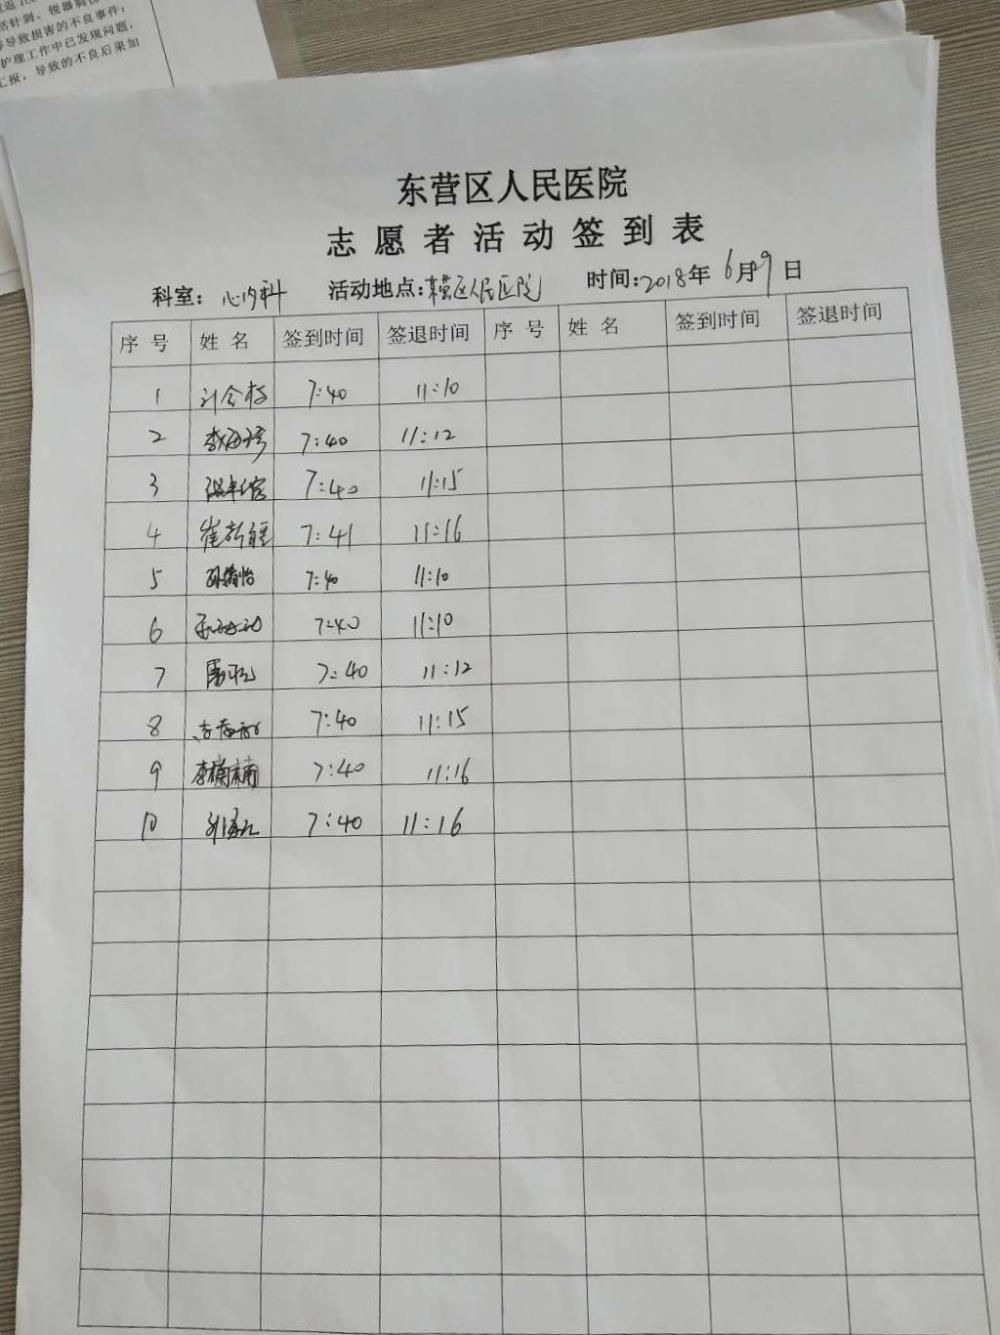 括针刺、锐器刺伤
导致损害的不良事件；
护理工作中已发现问题，
汇报，导致的不良后果加
东营区人民医院
志愿者活动签到表
科室：心内科 活动地点：东营区人民医院 时间：2018年6月9日
序号 姓名 签到时间 签退时间 序号 姓名 签到时间 签退时间
1 7:40 11:10
2 7:40 11:12
3 7:40 11:15
4 7:41 11:16
5 孙倩怡 7:40 11:10
6 7:40 11:10
7 7:40 11:12
8 7:40 11:15
9 李楠楠 7:40 11:16
10 7:40 11:16